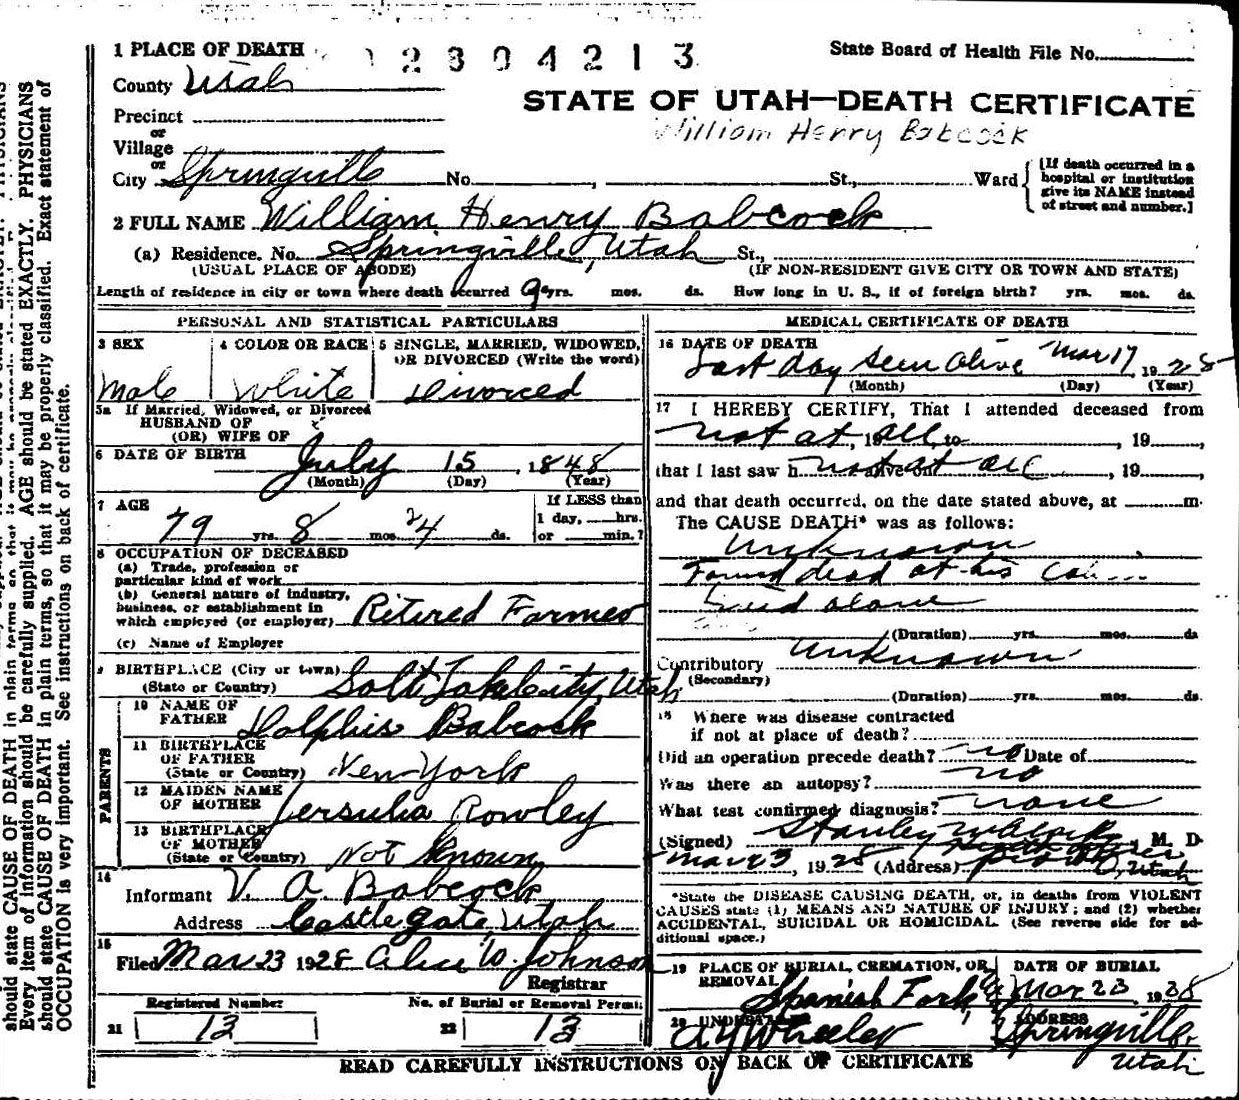 1 PLACE OF DEATH
2304213
State Board of Health File No.
County Utah
STATE OF UTAH—DEATH CERTIFICATE
Precinct
William Henry Babcock
or
Village
or
City Springville No. , St., Ward
[If death occurred in a
hospital or institution
give its NAME instead
of street and number.]
2 FULL NAME William Henry Babcock
(a) Residence. No. Springville, Utah St.,
(USUAL PLACE OF ABODE) (IF NON-RESIDENT GIVE CITY OR TOWN AND STATE)
Length of residence in city or town where death occurred 9 yrs. mos. ds. How long in U. S., if of foreign birth? yrs. mos. ds.
PERSONAL AND STATISTICAL PARTICULARS
3 SEX 4 COLOR OR RACE 5 SINGLE, MARRIED, WIDOWED,
OR DIVORCED (Write the word)
Male White Divorced
5a If Married, Widowed, or Divorced
HUSBAND OF
(OR) WIFE OF
6 DATE OF BIRTH July 15, 1848
(Month) (Day) (Year)
7 AGE If LESS than
79 yrs. 8 mos. 24 ds. 1 day, hrs.
or min.?
8 OCCUPATION OF DECEASED
(a) Trade, profession or
particular kind of work
(b) General nature of industry,
business, or establishment in
which employed (or employer) Ritired Farmer
(c) Name of Employer
9 BIRTHPLACE (City or town)
(State or Country) Salt Lake City, Utah
PARENTS
10 NAME OF
FATHER Dolphis Babcock
11 BIRTHPLACE
OF FATHER
(State or Country) New York
12 MAIDEN NAME
OF MOTHER Jersulia Rowley
13 BIRTHPLACE
OF MOTHER
(State or Country) Not Known
14
Informant V. A. Babcock
Address Castlegate, Utah
15
Filed Mar 23 1928 Alice W. Johnson
Registrar
Registered Number No. of Burial or Removal Permit
21 13 22 13
MEDICAL CERTIFICATE OF DEATH
16 DATE OF DEATH
Last day seen alive Mar 17, 1928
(Month) (Day) (Year)
17 I HEREBY CERTIFY, That I attended deceased from
not at , 19 all, to , 19
that I last saw h not at all alive on , 19
and that death occurred, on the date stated above, at m.
The CAUSE DEATH* was as follows:
Unknown
Found dead at his
Lived alone
(Duration) yrs. mos. ds
Contributory Unknown
(Secondary)
(Duration) yrs. mos. ds.
18 Where was disease contracted
if not at place of death?
Did an operation precede death? no Date of
Was there an autopsy? no
What test confirmed diagnosis? none
(Signed) Stanley M. D.
Mar 23, 1928 (Address) Provo, Utah
*State the DISEASE CAUSING DEATH, or, in deaths from VIOLENT
CAUSES state (1) MEANS AND NATURE OF INJURY; and (2) whether
ACCIDENTAL, SUICIDAL OR HOMICIDAL. (See reverse side for ad-
ditional space.)
19 PLACE OF BURIAL, CREMATION, OR DATE OF BURIAL
REMOVAL
Spanish Fork, Mar 23, 1928
20 UNDERTAKER ADDRESS
A Y Wheeler Springville,
Utah
READ CAREFULLY INSTRUCTIONS ON BACK OF CERTIFICATE
should state CAUSE OF DEATH in plain terms, so that it may be properly
Every item of information should be carefully supplied. AGE should be stated EXACTLY. PHYSICIANS
should state CAUSE OF DEATH in plain terms, so that it may be properly classified. Exact statement of
OCCUPATION is very important. See instructions on back of certificate.